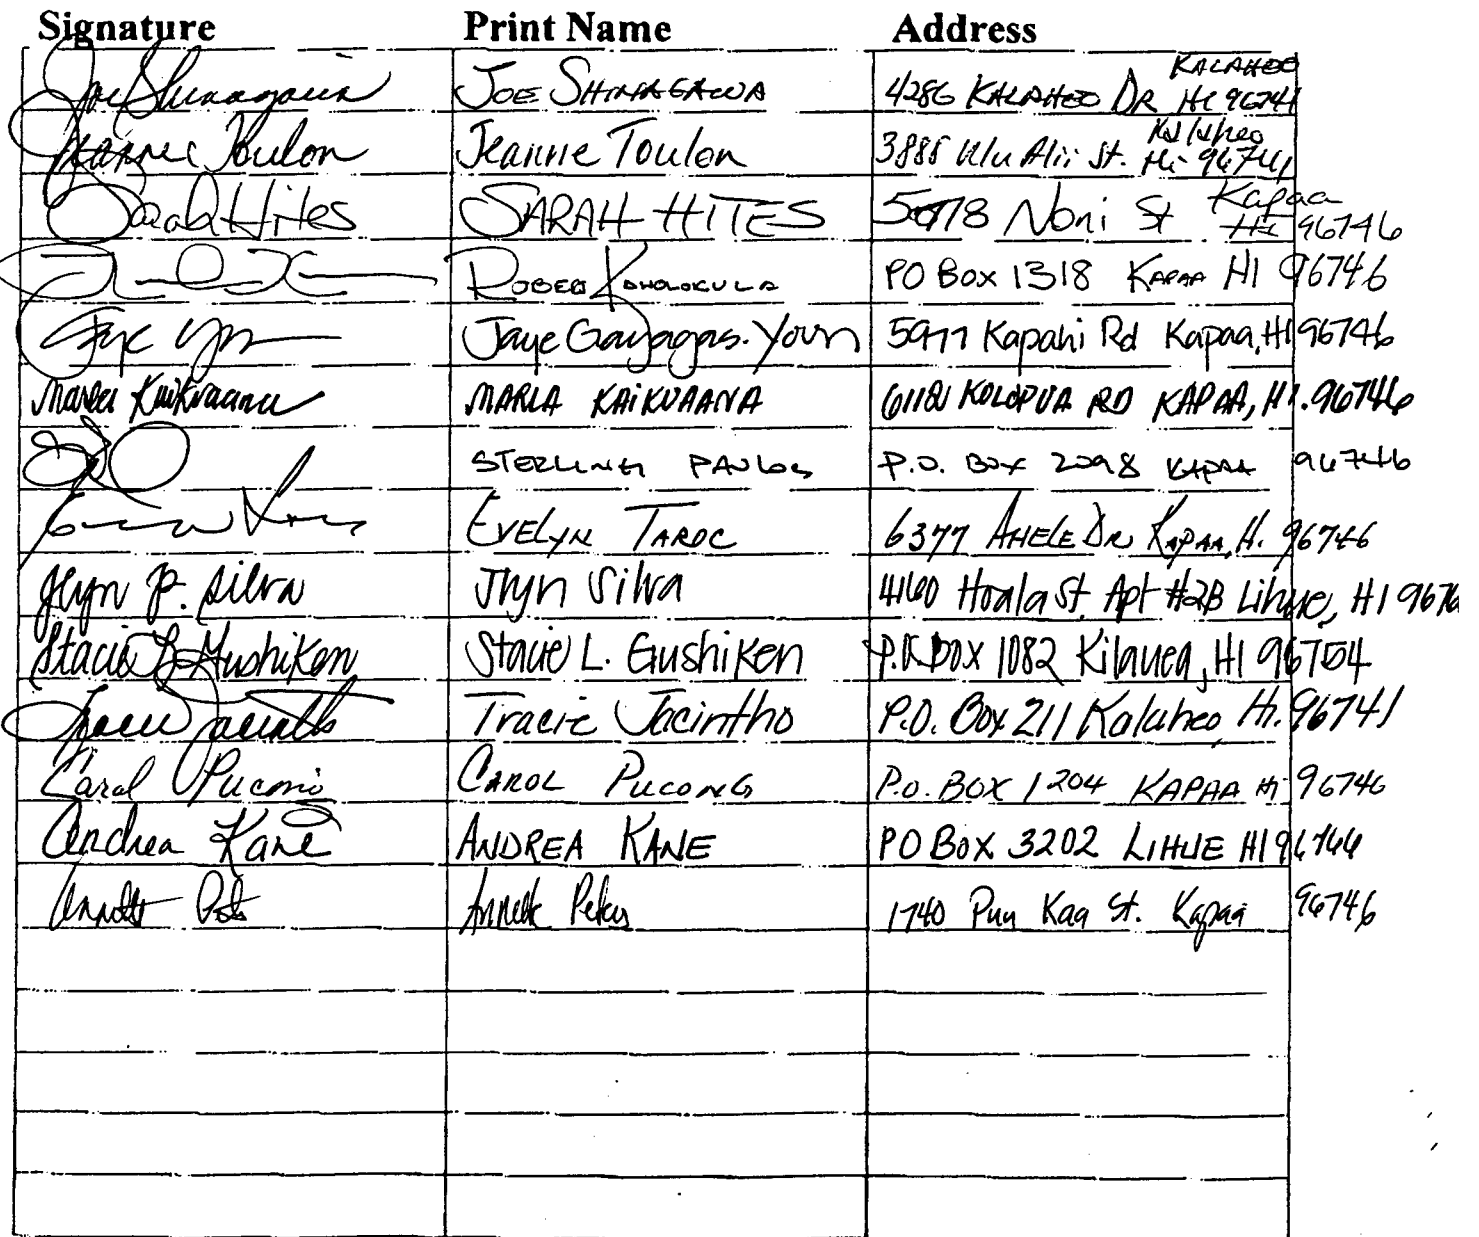 Signature Print Name Address
Joe Shinagawa JOE SHINAGAWA 4286 KALAHEO DR KALAHEO HI 96741
Jeanne Toulon Jeanne Toulon 3885 Ulu Alii St. Kalaheo Hi 96741
Sarah Hites SARAH HITES Noni St Kapaa HI 96746
ROBERT KAHOLOKULA PO Box 1318 KAPAA HI 96746
Jaye Gayagas-Youn 5977 Kapahi Rd Kapaa, HI 96746
Marla Kaikuaana MARLA KAIKUAANA KOLOPUA RD KAPAA, HI. 96746
STERLING P.O. BOX 2098 KAPAA 96746
EVELYN TAROC 6377 AHELE DR KAPAA, HI. 96746
Jlyn P. Silva Jlyn Silva 4160 Hoala St. Apt #2B Lihue, HI
Stacie L. Gushiken Stacie L. Gushiken P.O. BOX 1082 Kilauea, HI 96754
Tracie Jacintho Tracie Jacintho P.O. Box 211 Kalaheo, Hi. 96741
Carol Pucong CAROL PUCONG P.O. BOX 1204 KAPAA HI 96746
Andrea Kane ANDREA KANE PO BOX 3202 LIHUE HI 96766
Annette 1740 Puu Kaa St. Kapaa 96746